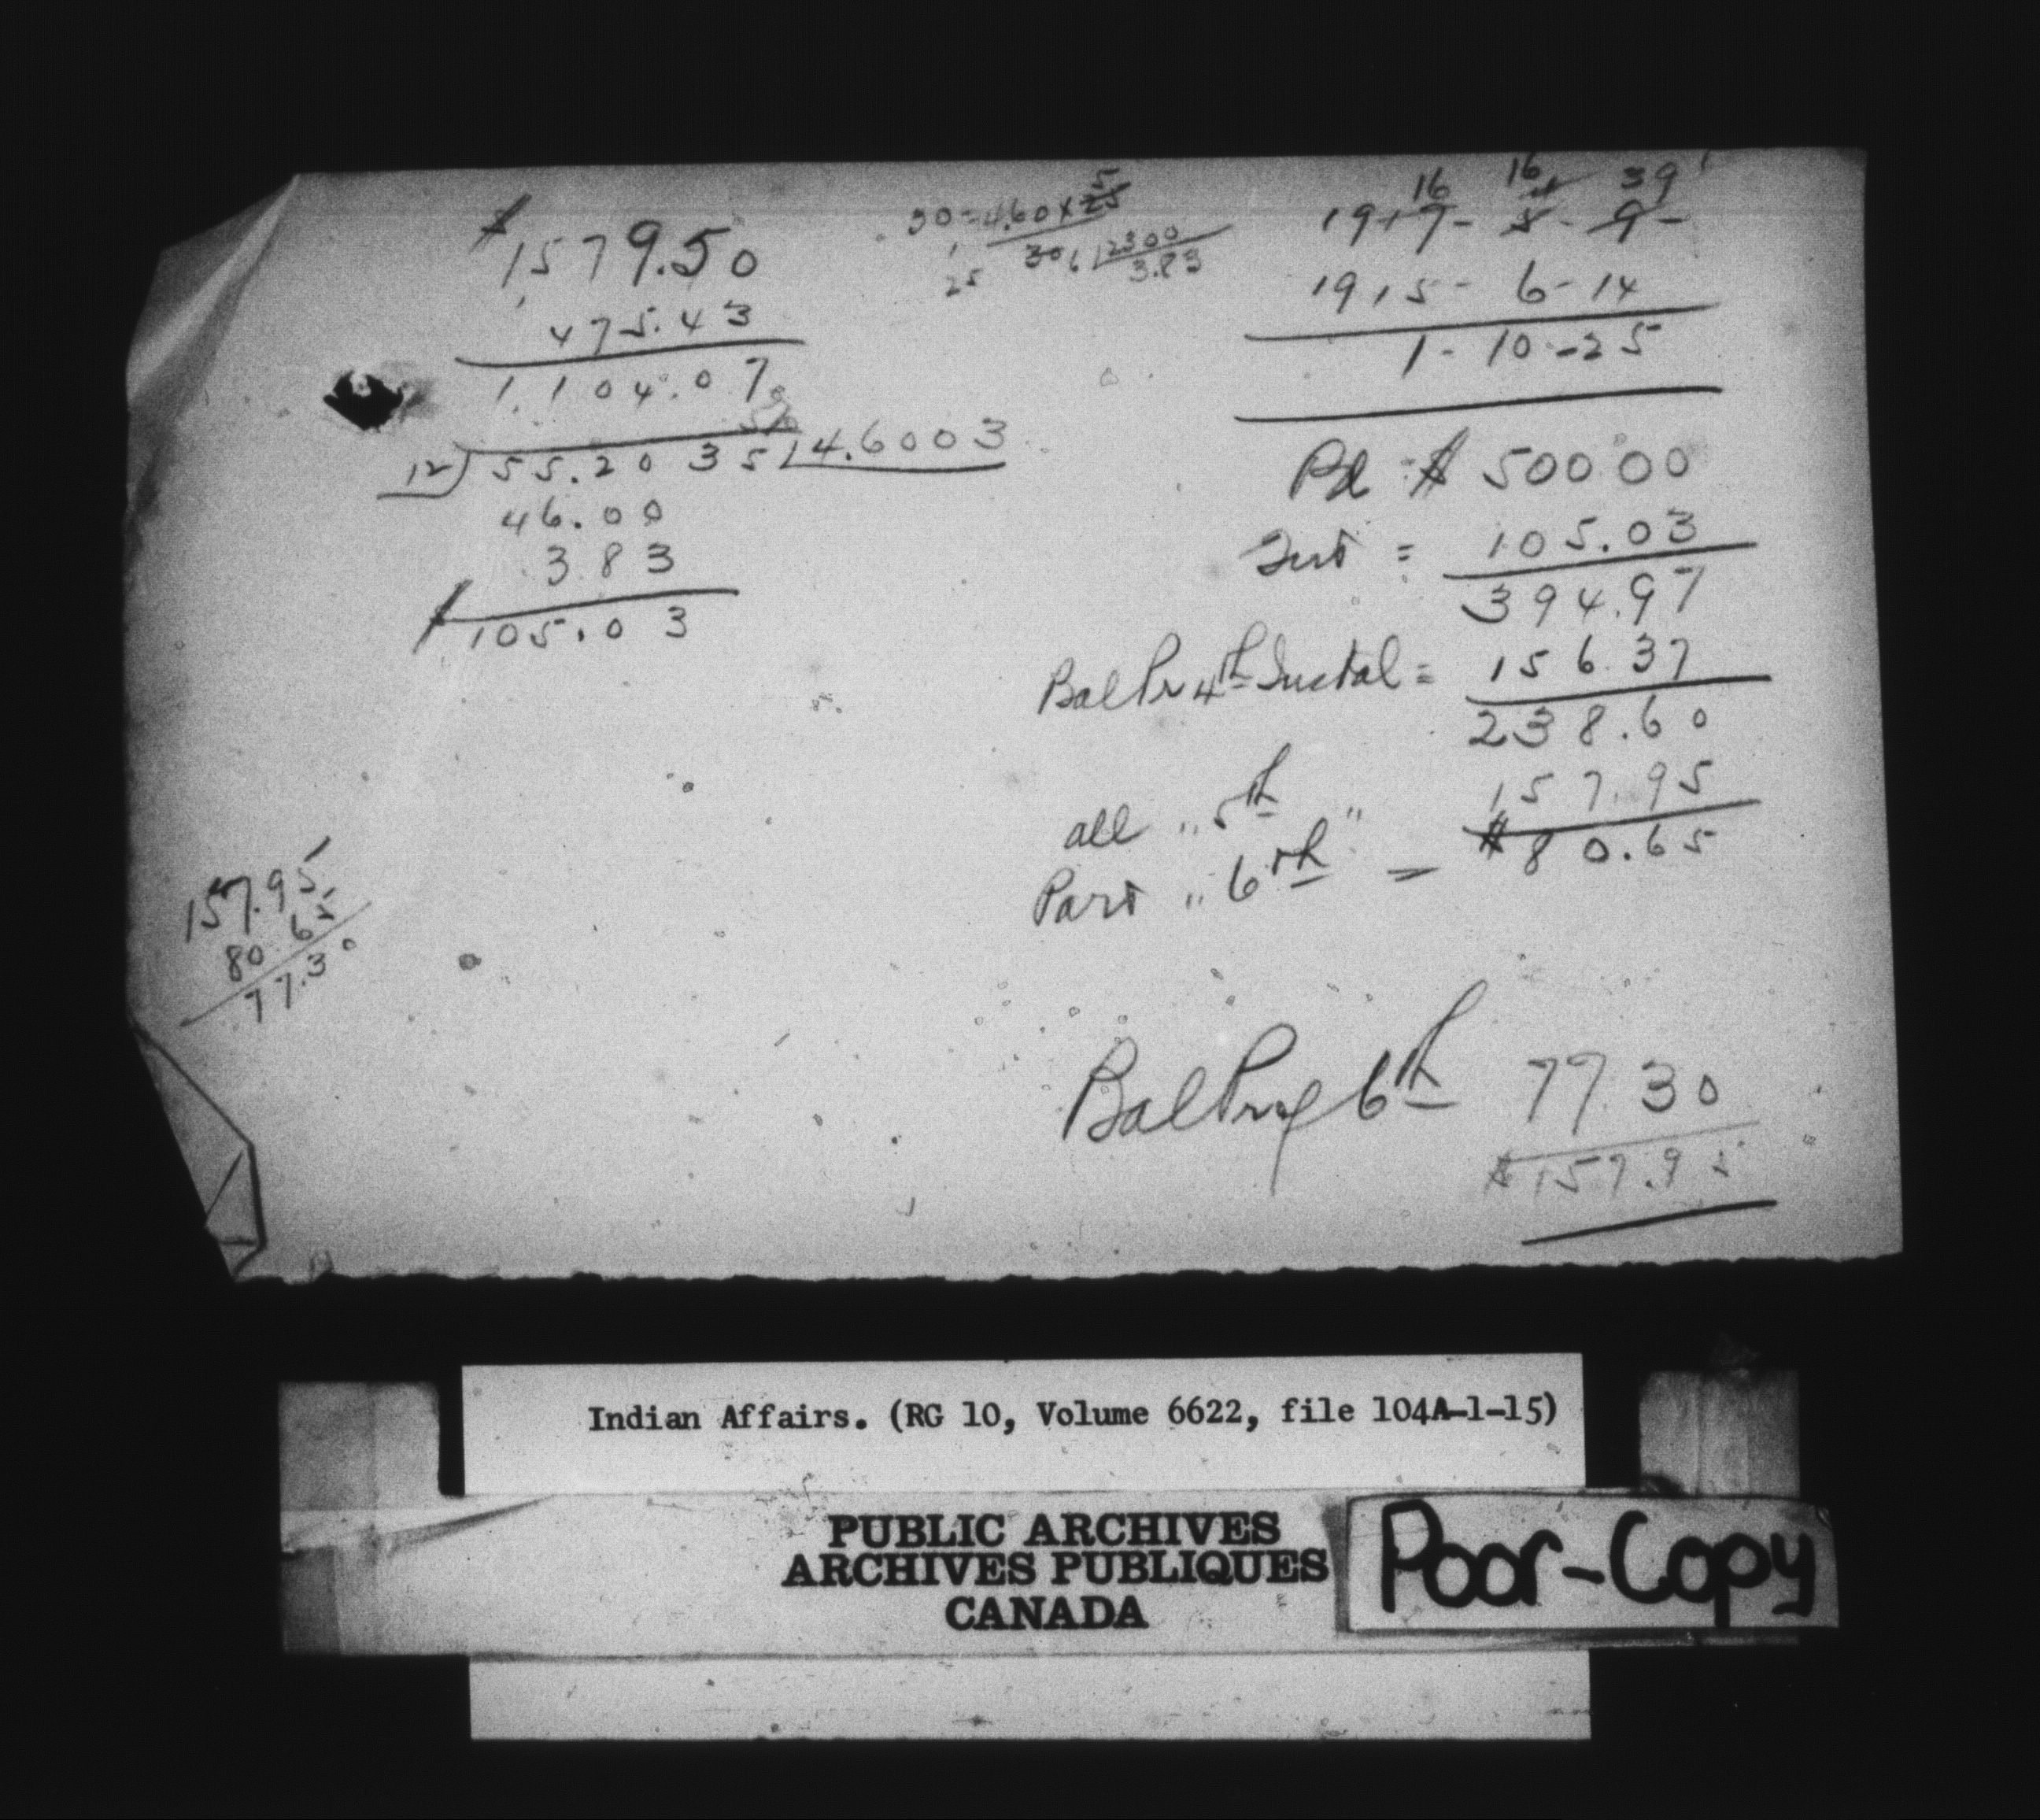 $1579.50
475.43
1,104.07
5%
12) 55.2035 | 4.6003
46.00
3 83
$105.03
30 = 4.60 x 25 5
1
25
30 6 | 2300
3.83
16 16 39
1917 - 5 - 9 -
1915 - 6 - 14
1 - 10 - 25
Pd $500 00
Int = 105.03
394.97
Bal Pr 4th Instal = 156 37
238.60
all " 5th " 157.95
Part " 6th = $80.65
157.95
80 65
77.30
Bal Prp 6th 77 30
$157.95
Indian Affairs. (RG 10, Volume 6622, file 104A-1-15)
PUBLIC ARCHIVES
ARCHIVES PUBLIQUES
CANADA
Poor-Copy